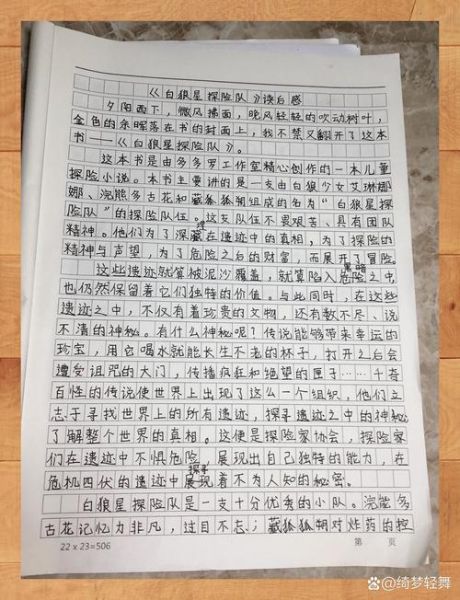 《白狼星探险队》读后感
夕阳西下，微风拂面，晚风轻轻的吹动树叶，
金色的余晖落在书的封面上，我不禁又翻开了这本
书——《白狼星探险队》。
这本书是由多多罗工作室精心创作的一本儿童
探险小说。本书主要讲的是一支由白狼少女艾琳娜
娜、浣熊多古花和藏狐狐朝组成的名为“白狼星探
险队”的探险队伍。这支队伍不畏艰苦、具有团队
精神。他们为了深藏在遗迹中的真相，为了探险的
精神与声望，为了危险之白的财富，而展开了冒险。
这些遗迹就算被泥沙覆盖，就算陷入黑暗之中，
也仍然保留着它们独特的价值。与此同时，在这些
遗迹之中，不仅有着珍贵的文物，还有数不尽、说
不清的神秘。有什么神秘呢？传说能够带来幸运的
珍宝，用它喝水就能长生不老的杯子，打开之后会
遭受诅咒的大门，传播疯狂和绝望的匣子……千奇
百怪的传说使世界上出现了这么一个组织，他们立
志于寻找世界上的所有遗迹，探寻遗迹之中的神秘，
了解整个世界的真相。这便是探险家协会，探险家
们在遗迹中不惧危险，展现出自己独特的能力，在
危机四伏的遗迹中探寻着不为人知的秘密。
白狼星探险队是一支十分优秀的小队。浣熊多
古花记忆力非凡，过目不忘；藏狐狐朝对炸药的控
22×23=506
第 页
百家号@绮梦轻舞